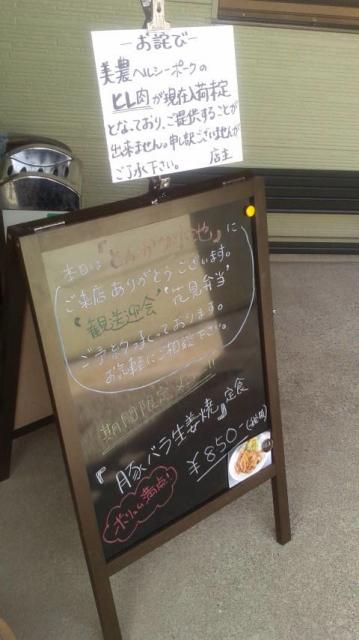 ーお詫びー
美濃ヘルシーポークの
ヒレ肉が現在入荷未定
となっており、ご提供することが
出来ません。申し訳ございませんが
ご了承下さい。 店主
本日は『とんかつ 也』に
ご来店ありがとうございます。
"歓送迎会" "花見弁当"
ご予約うけたまわっております。
お気軽にご相談下さい。
期間限定メニュー!!
『豚バラ生姜焼』定食
¥850-
ボリューム満点!